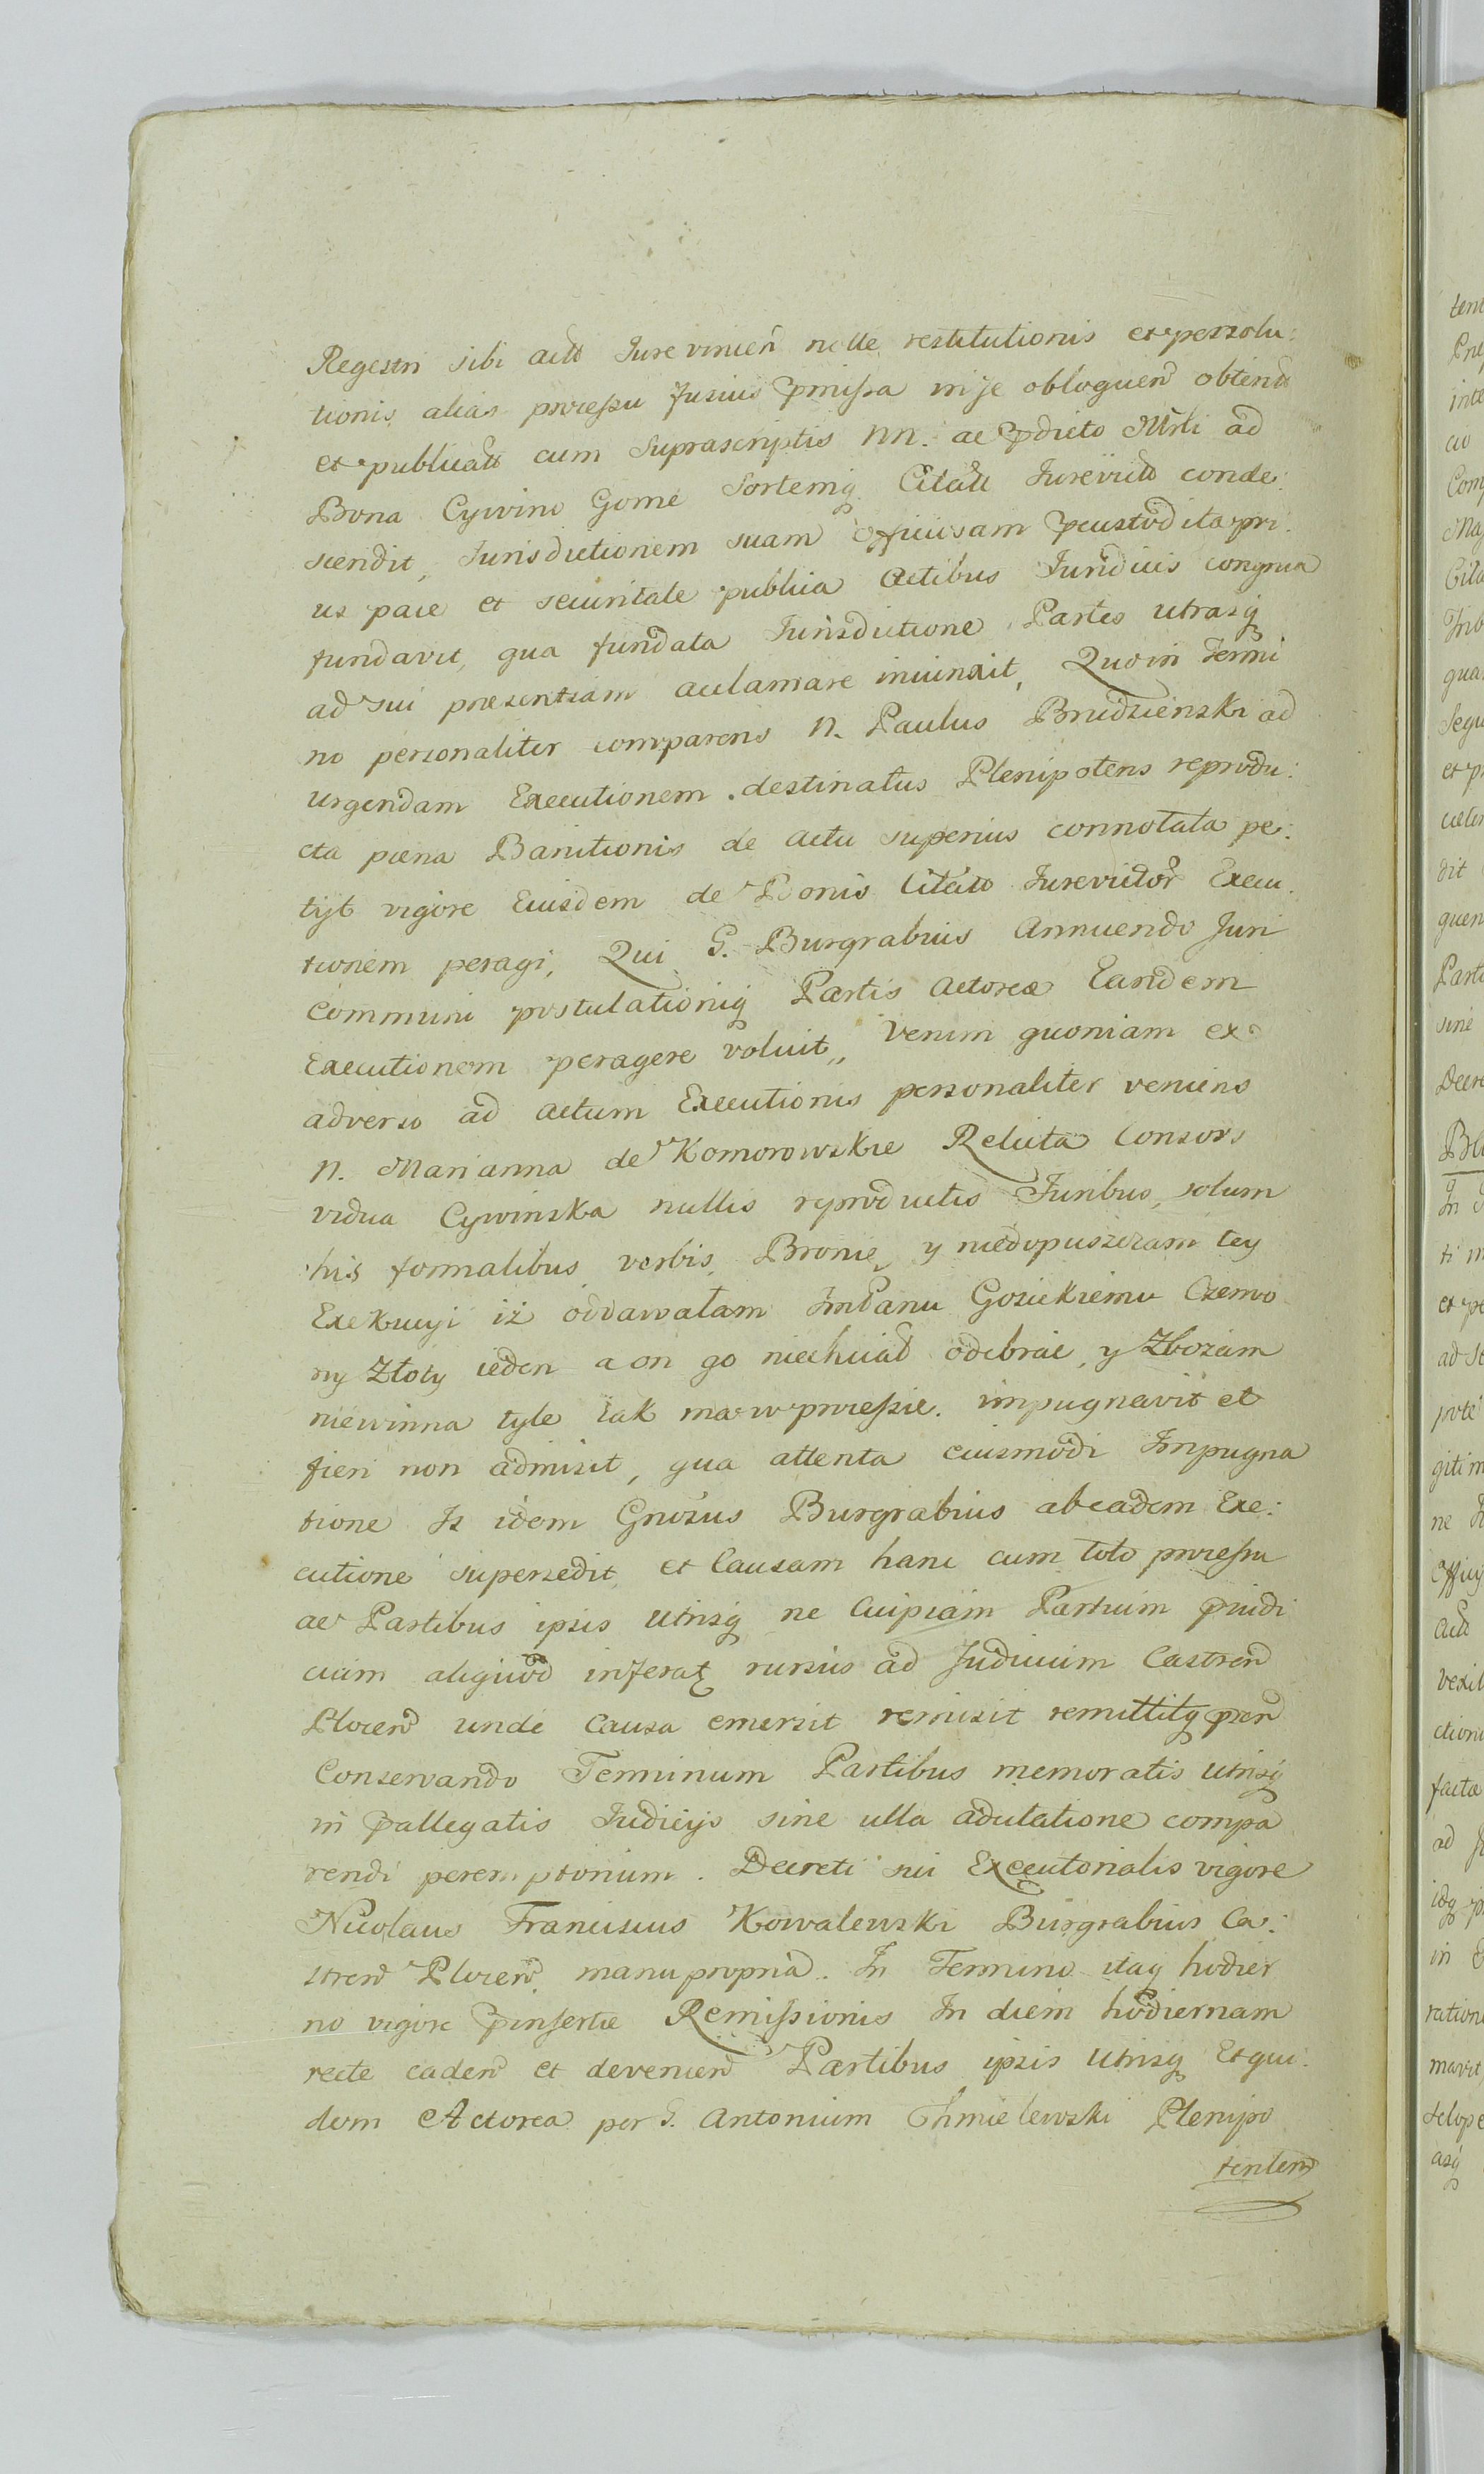 Regestri sibi actt Jurevincen nelle restitutionis et perzolu:
tionis, alias processu fusius pmissa in se obloquen obtent
et publicatt cum suprascriptis NN. ac pdicto Mrli ad
Bona Cywino Gome Sortemq Citatt Jurevictt conde:
scendit, Jurisdictionem suam officiosam pcustodita pri:
us pace et securitate publica Actibus Juridicis congrua
fundavit, qua fundata Jurisdictione Partes utrasq
ad sui praesentiam acclamare iniunxit, Quo in Termi
no personaliter comparens N. Paulus Brudzienski ad
urgendam Executionem destinatus Plenipotens reprodu:
cta paena Banitionis de actu superius connotata pe:
tyt vigore Eiusdem de Bonis Citato Jurevictor Execu:
tionem peragi, Qui G. Burgrabius Annuendo Juri
Communi postulationiq Partis Actorea Eandem
Executionem peragere voluit,, Verum quoniam ex
adverso ad actum Executionis personaliter veniens
N. Marianna de Komorowskie Relicta Consors
vidua Cywinska nullis reproductis Juribus, solum
his formalibus verbis, Bronie, y niedopuszczam tey
Exekucyi iż oddawałam ImPanu Gosickiemu Czerwo
ny Złoty ieden a on go niechciał odebrać, y Zbożam
niewinna tyle iak ma w processie. impugnavit et
fieri non admisit, qua attenta eiusmodi Impugna
tione Is idem Gnosus Burgrabius ab eadem Exe:
cutione supersedit, et Causam hanc cum toto processu
ac Partibus ipsis utrisq ne Cuipiam Partium pjudi
cium aliquod inferatq rursus ad Judicium Castren
Plocen unde Causa emersit remisit remittitq psen
Conservando Terminum Partibus memoratis utrisq
in pallegatis Judicijs sine ulla adcitatione compa
rendi peremptorium. Decreti sui Executorialis vigore
Nicolaus Franciscus Kowalewski Burgrabius Ca:
stren Plocen manu propria. In Termino itaq hodier
no vigore pinserte Remissionis In diem hodiernam
recte caden et devenien Partibus ipsis utrisq Et qui:
dem Actorea per G. Antonium Chmielewski Plenipo
tentem